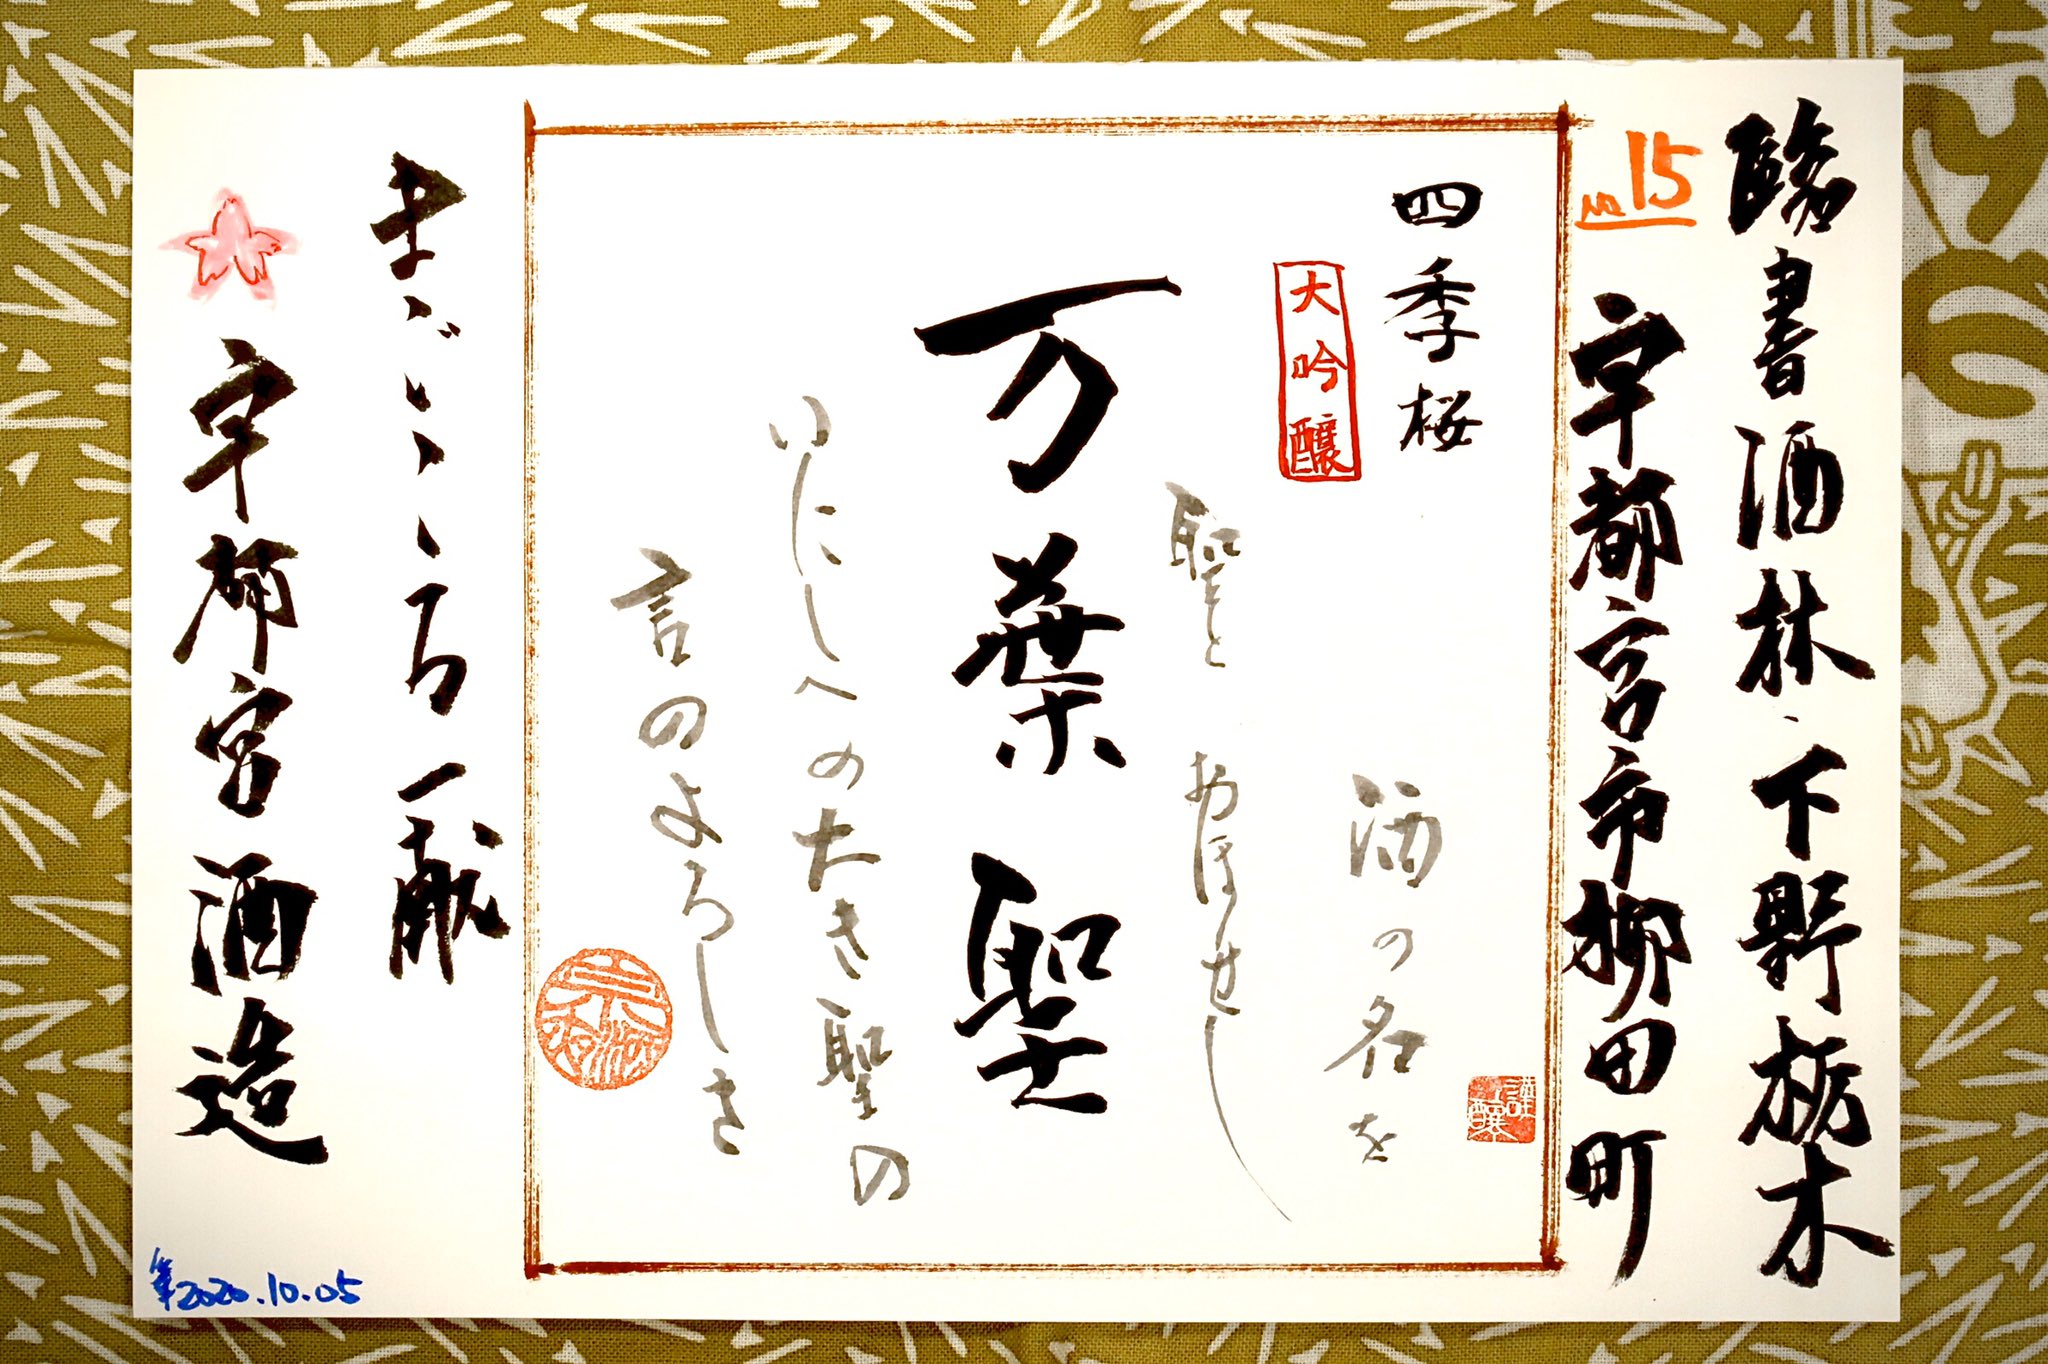 臨書酒林・下野栃木
No.15
宇都宮市柳田町
四季桜
大吟醸
酒の名を
聖と おほせし
万葉聖
いにしへの大き聖の
言のよろしさ
謹醸
まごゝろ一献
宇都宮酒造
筆2020.10.05